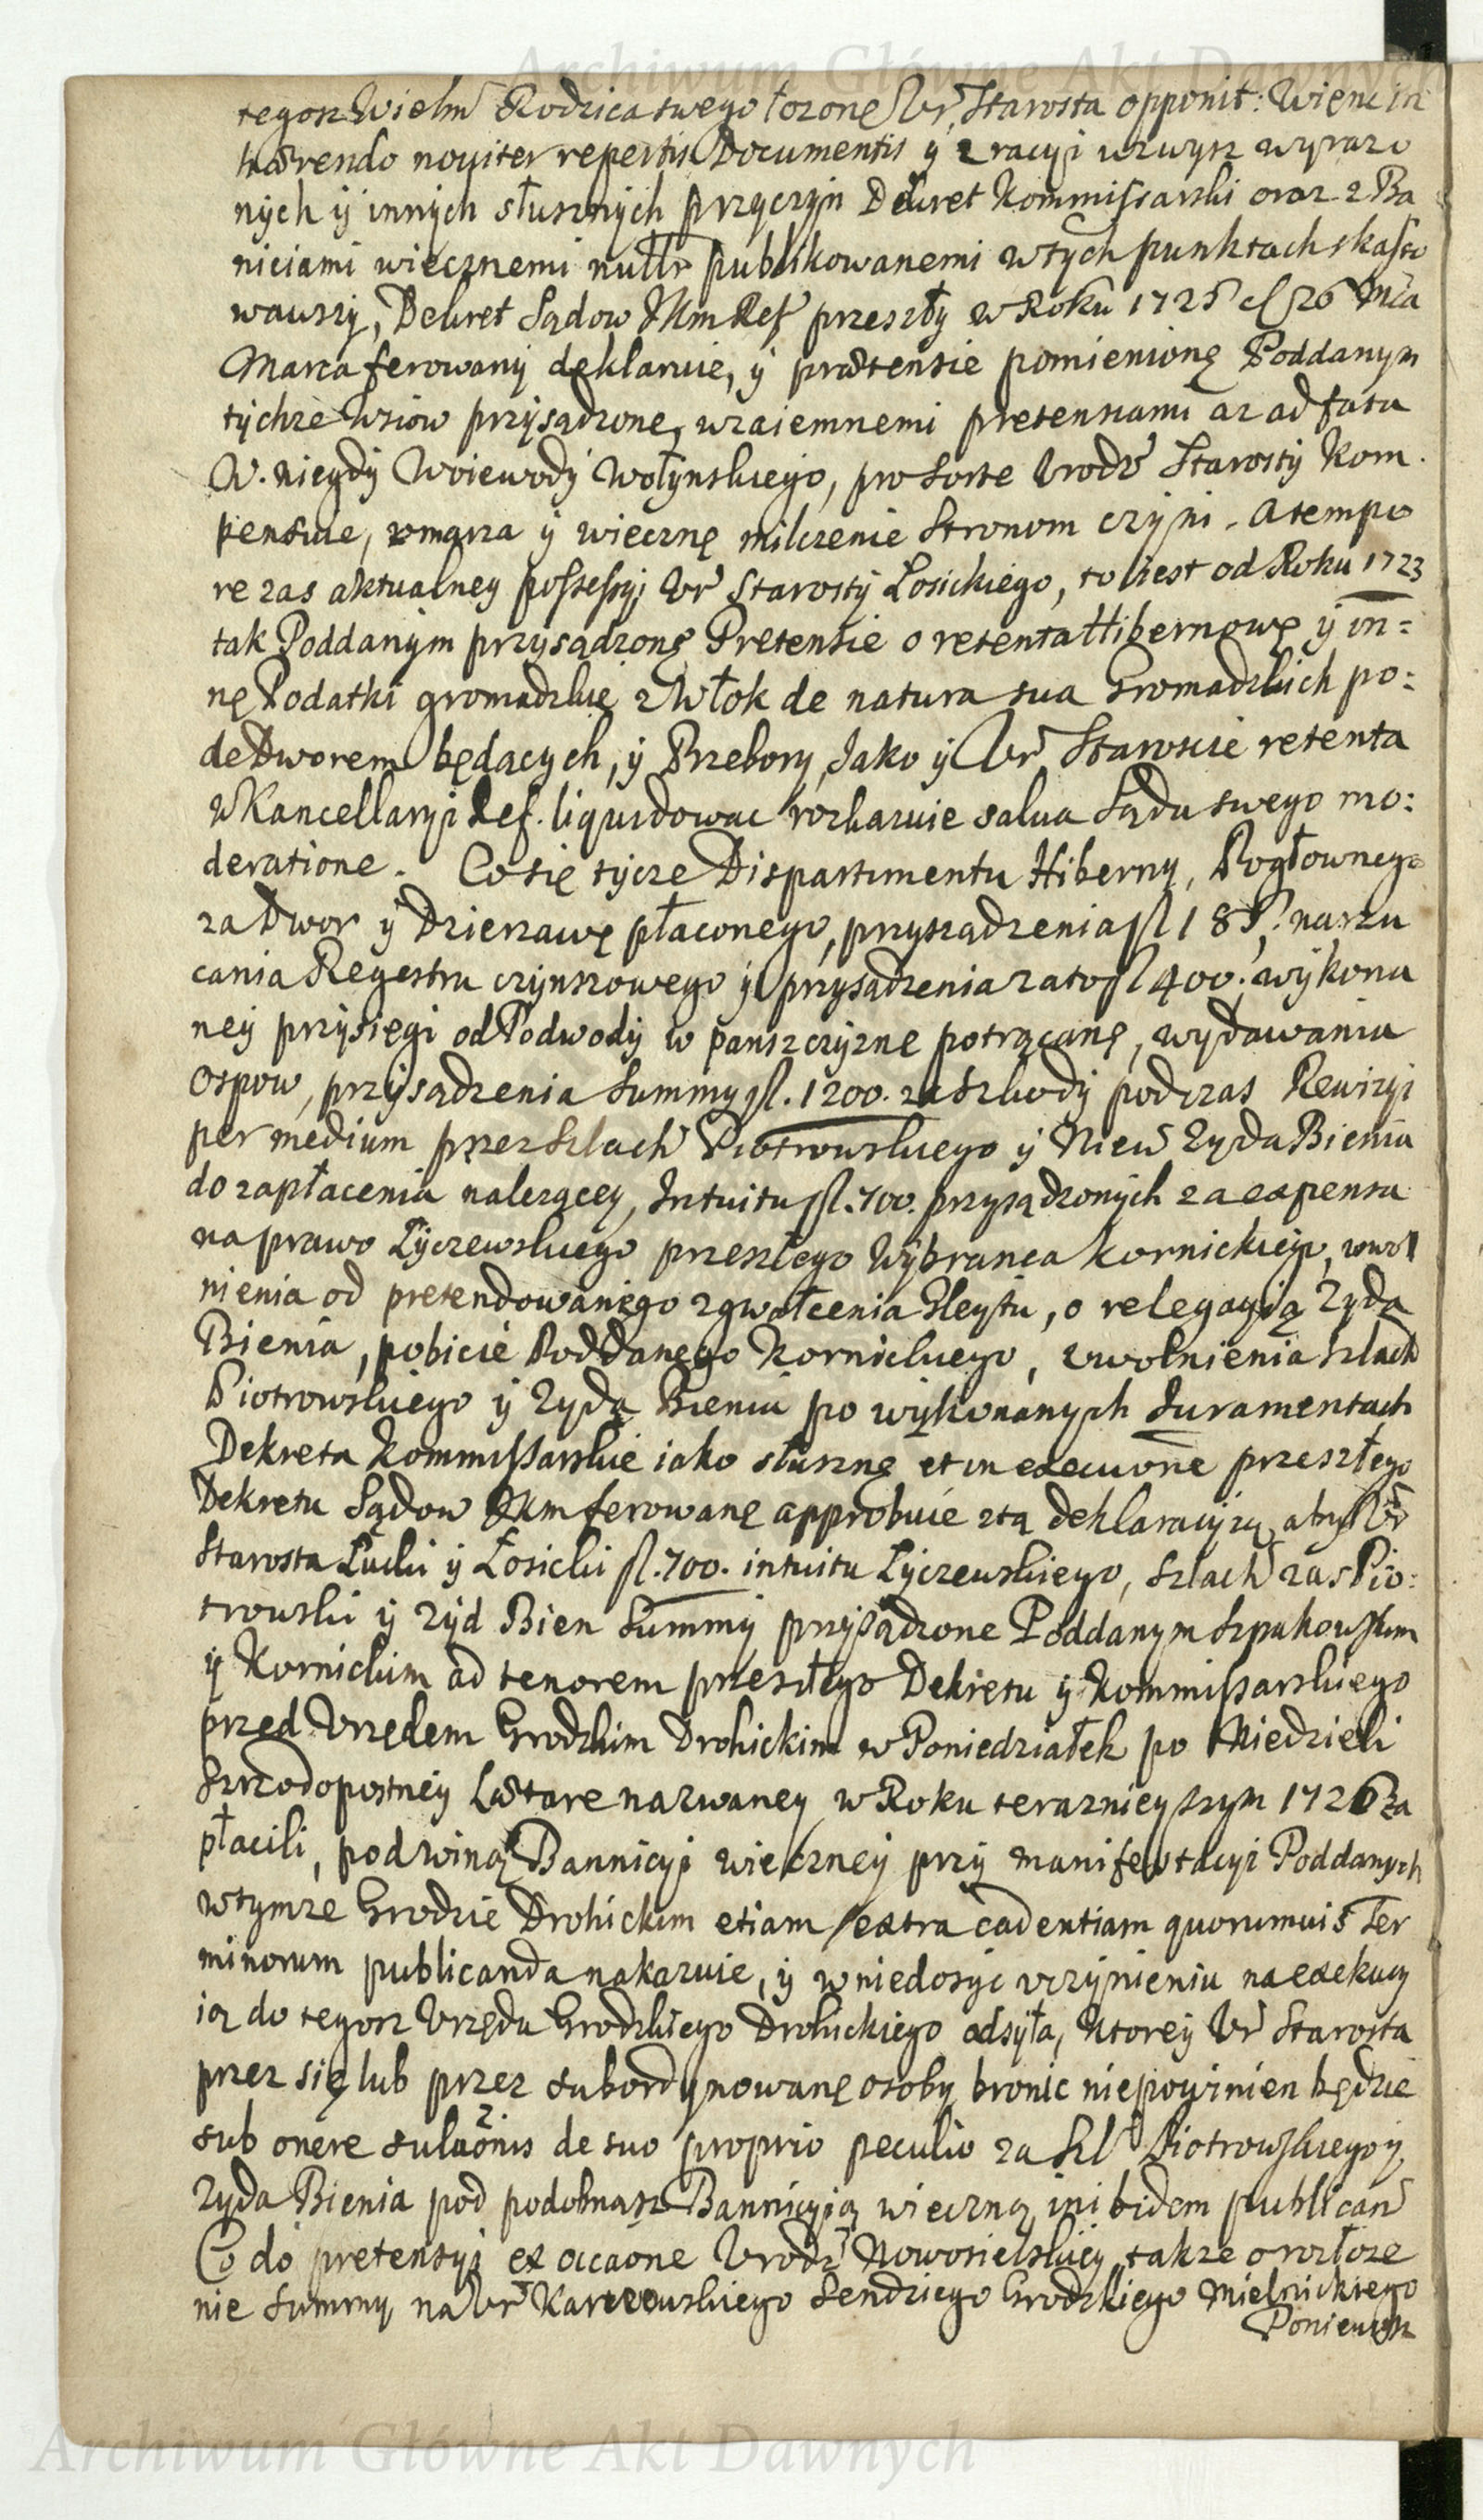 tegosz Wielm Rodzica swego łozonę Ur Starosta opponit: Więnc in
hærendo noviter repertis Documentis y z racyi wzwysz wyrazo
nÿch ÿ innÿch słusznÿch przÿczÿn Dekret Kommissarski oraz z Ba
niciami wiecznemi nullr publikowanemi w tÿch punktach skasso
wawszÿ, Dekret Sądow JKm Ref przeszłÿ w Roku 1725 d 26 Mca
Marca ferowanÿ deklaruie, ÿ prætensie pomienionę Poddanym
tÿchze Wsiow przÿsądzone, wzaiemnemi pretensiami az ad fata
W. niegdÿ Woiewodÿ Wołÿnskiego, pro sorte Urodz Starostÿ Kom
pensuie, umarza ÿ wiecznę milczenie Stronom czÿni. A tempo
re zas aktualney possessyi Ur Starostÿ Łosickiego, to iest od Roku 1723
tak Poddanÿm przysądzonę Pretensie o retenta Hibernowę ÿ in=
nę Podatki gromadzkię z Włok de natura sua Gromadzkich po=
de Dworem będących, ÿ Przebory, Jako ÿ Ur Staroscie retenta
w Kancellaryi Ref. liquidowac rozkazuie salva Sądu swego mo=
deratione. Co się tÿcze Dispartimentu Hiberny, Pogłownego
za Dwor ÿ Dzierzawę płaconego, przysądzenia fl 185, narzu
cania Regestru czynszowego ÿ przÿsądzenia za to fl 400, wÿkona
neÿ przÿsięgi od Podwodÿ w panszczÿznę potrącanę, wydawaniu
Ospow, przÿsądzenia Summy fl. 1200. za Szkodÿ podczas Rewizyi
per medium przez Szlach Piotrowskiego ÿ Niew Zyda Bienia
do zapłacenia nalezącey, Intuitu fl. 700. przysądzonÿch za expensa
na prawo Łÿczewskiego przeszłego Wÿbranca kornickiego, uwol
nienia od pretendowanego zgwałcenia Gleytu, o relegacyią Zyda
Bienia, pobicie Poddanego Kornickiego, uwolnienia Szlach
Piotrowskiego ÿ Zyda Bienia po wÿkonanych Juramentach
Dekreta Kommissarskie iako słusznę et in executione przeszłego
Dekretu Sądow JKm ferowanę approbuie z tą deklaracyią, aby Ur
Starosta Łucki ÿ Łosicki fl. 700. intuitu Łÿczewskiego, Szlach zas Pio=
trowski ÿ Zÿd Bien Summÿ przÿsądzone Poddanym Szpakowskim
ÿ Kornickim ad tenorem przeszłego Dekretu ÿ Kommissarskiego
przed Urzędem Grodzkim Drohickim w Poniedziałek po Niedzieli
Szrzodopostneÿ Lætare nazwaney w Roku teraznieyszym 1726 za
płacili, pod winą Bannicyi wieczneÿ przÿ manifestacyi Poddanych
w tymze Grodzie Drohickim etiam extra cadentiam quorumvis Ter
minorum publicanda nakazuie, ÿ w niedosyc uczÿnieniu na exekucy
ią do tegosz Urzędu Grodzkiego Drohickiego odsyła, ktoreÿ Ur Starosta
przez się lub przez subordynowanę osoby bronic niepowinien będzie
sub onere sulaonis de suo proprio peculio za Szl Piotrowskiego y
Zyda Bienia pod podobnąsz Bannicyią wieczną inibidem publican
Co do pretensyi ex occaone Urodz Nowosielskiey, takze o rozłoze
nie Summy na Ur Karczewskiego Sendziego Grodzkiego Mielnickiego
Poniewsz
Archiwum Główne Akt Dawnych
Archiwum Główne Akt Dawnych